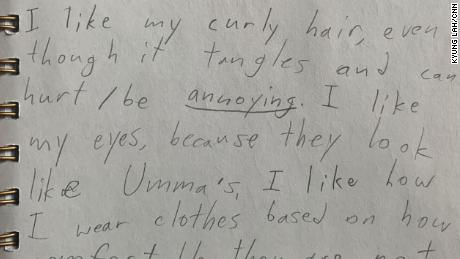 I like my curly hair, even
though it tangles and can
hurt/be annoying. I like
my eyes, because they look
like Umma's, I like how
I wear clothes based on how
comfortable they are not
KYUNG LAH/CNN